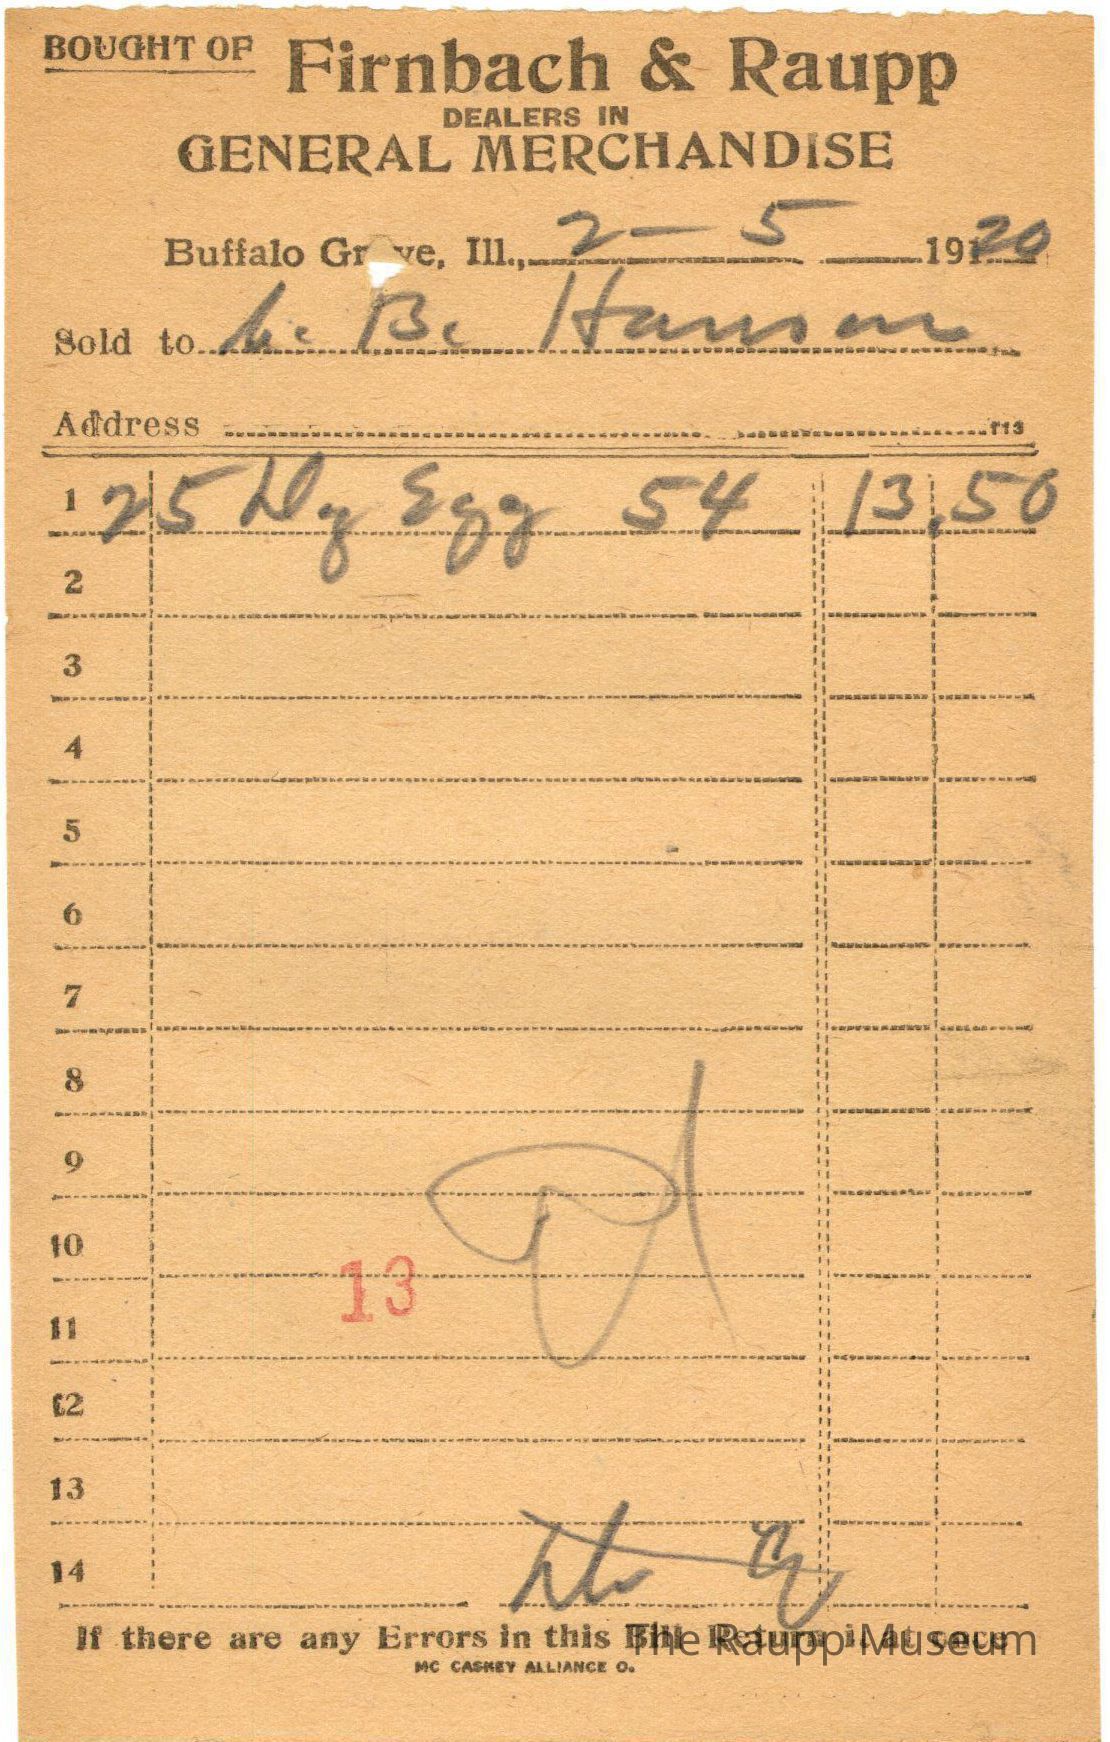 BOUGHT OF Firnbach & Raupp
DEALERS IN
GENERAL MERCHANDISE
Buffalo Gr ve, Ill., 2-5 1920
Sold to B. Hanson
Address 113
1 25 Dz Egg 54 13.50
2
3
4
5
6
7
8
9
10
13
11
12
13
14
If there are any Errors in this Bill Return it at once
The Raupp Museum
MC CASKEY ALLIANCE O.